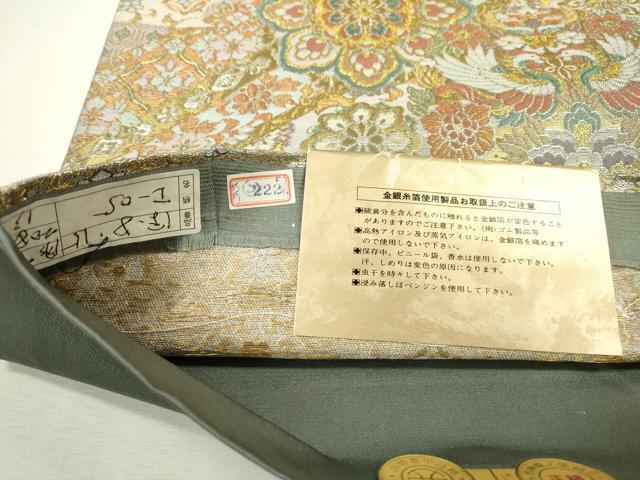 金銀糸箔使用製品お取扱上のご注意
◆硫黄分を含んだものに触れると金銀が変色すること
がありますのでご注意下さい。(例)ゴム製品等
◆高熱アイロン及び蒸気アイロンは、金銀箔を痛めます
ので使用しないで下さい。
◆保存中、ビニール袋、香水は使用しないで下さい。
汗、しめりは変色の原因になります。
◆虫干を時々して下さい。
◆浸み落しはベンジンを使用して下さい。
222
品名
柄名